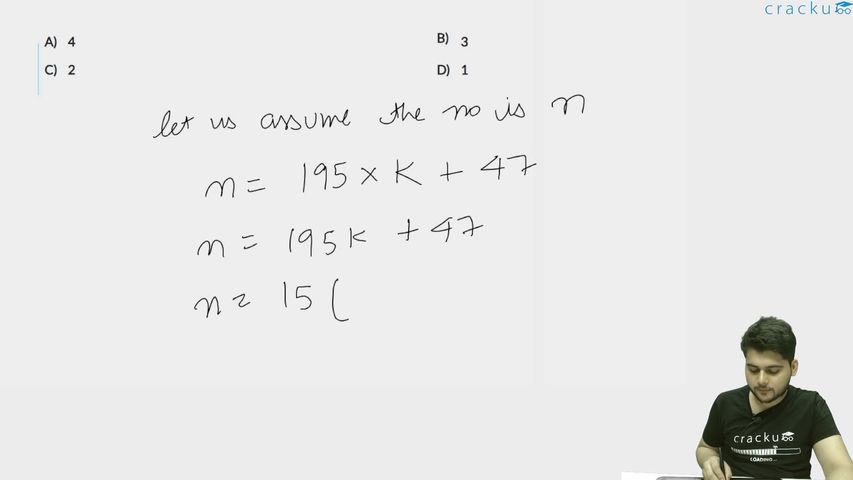 cracku
A) 4
B) 3
C) 2
D) 1
let us assume the no is n
n = 195 × K + 47
n = 195K + 47
n = 15 (
cracku
LOADING...